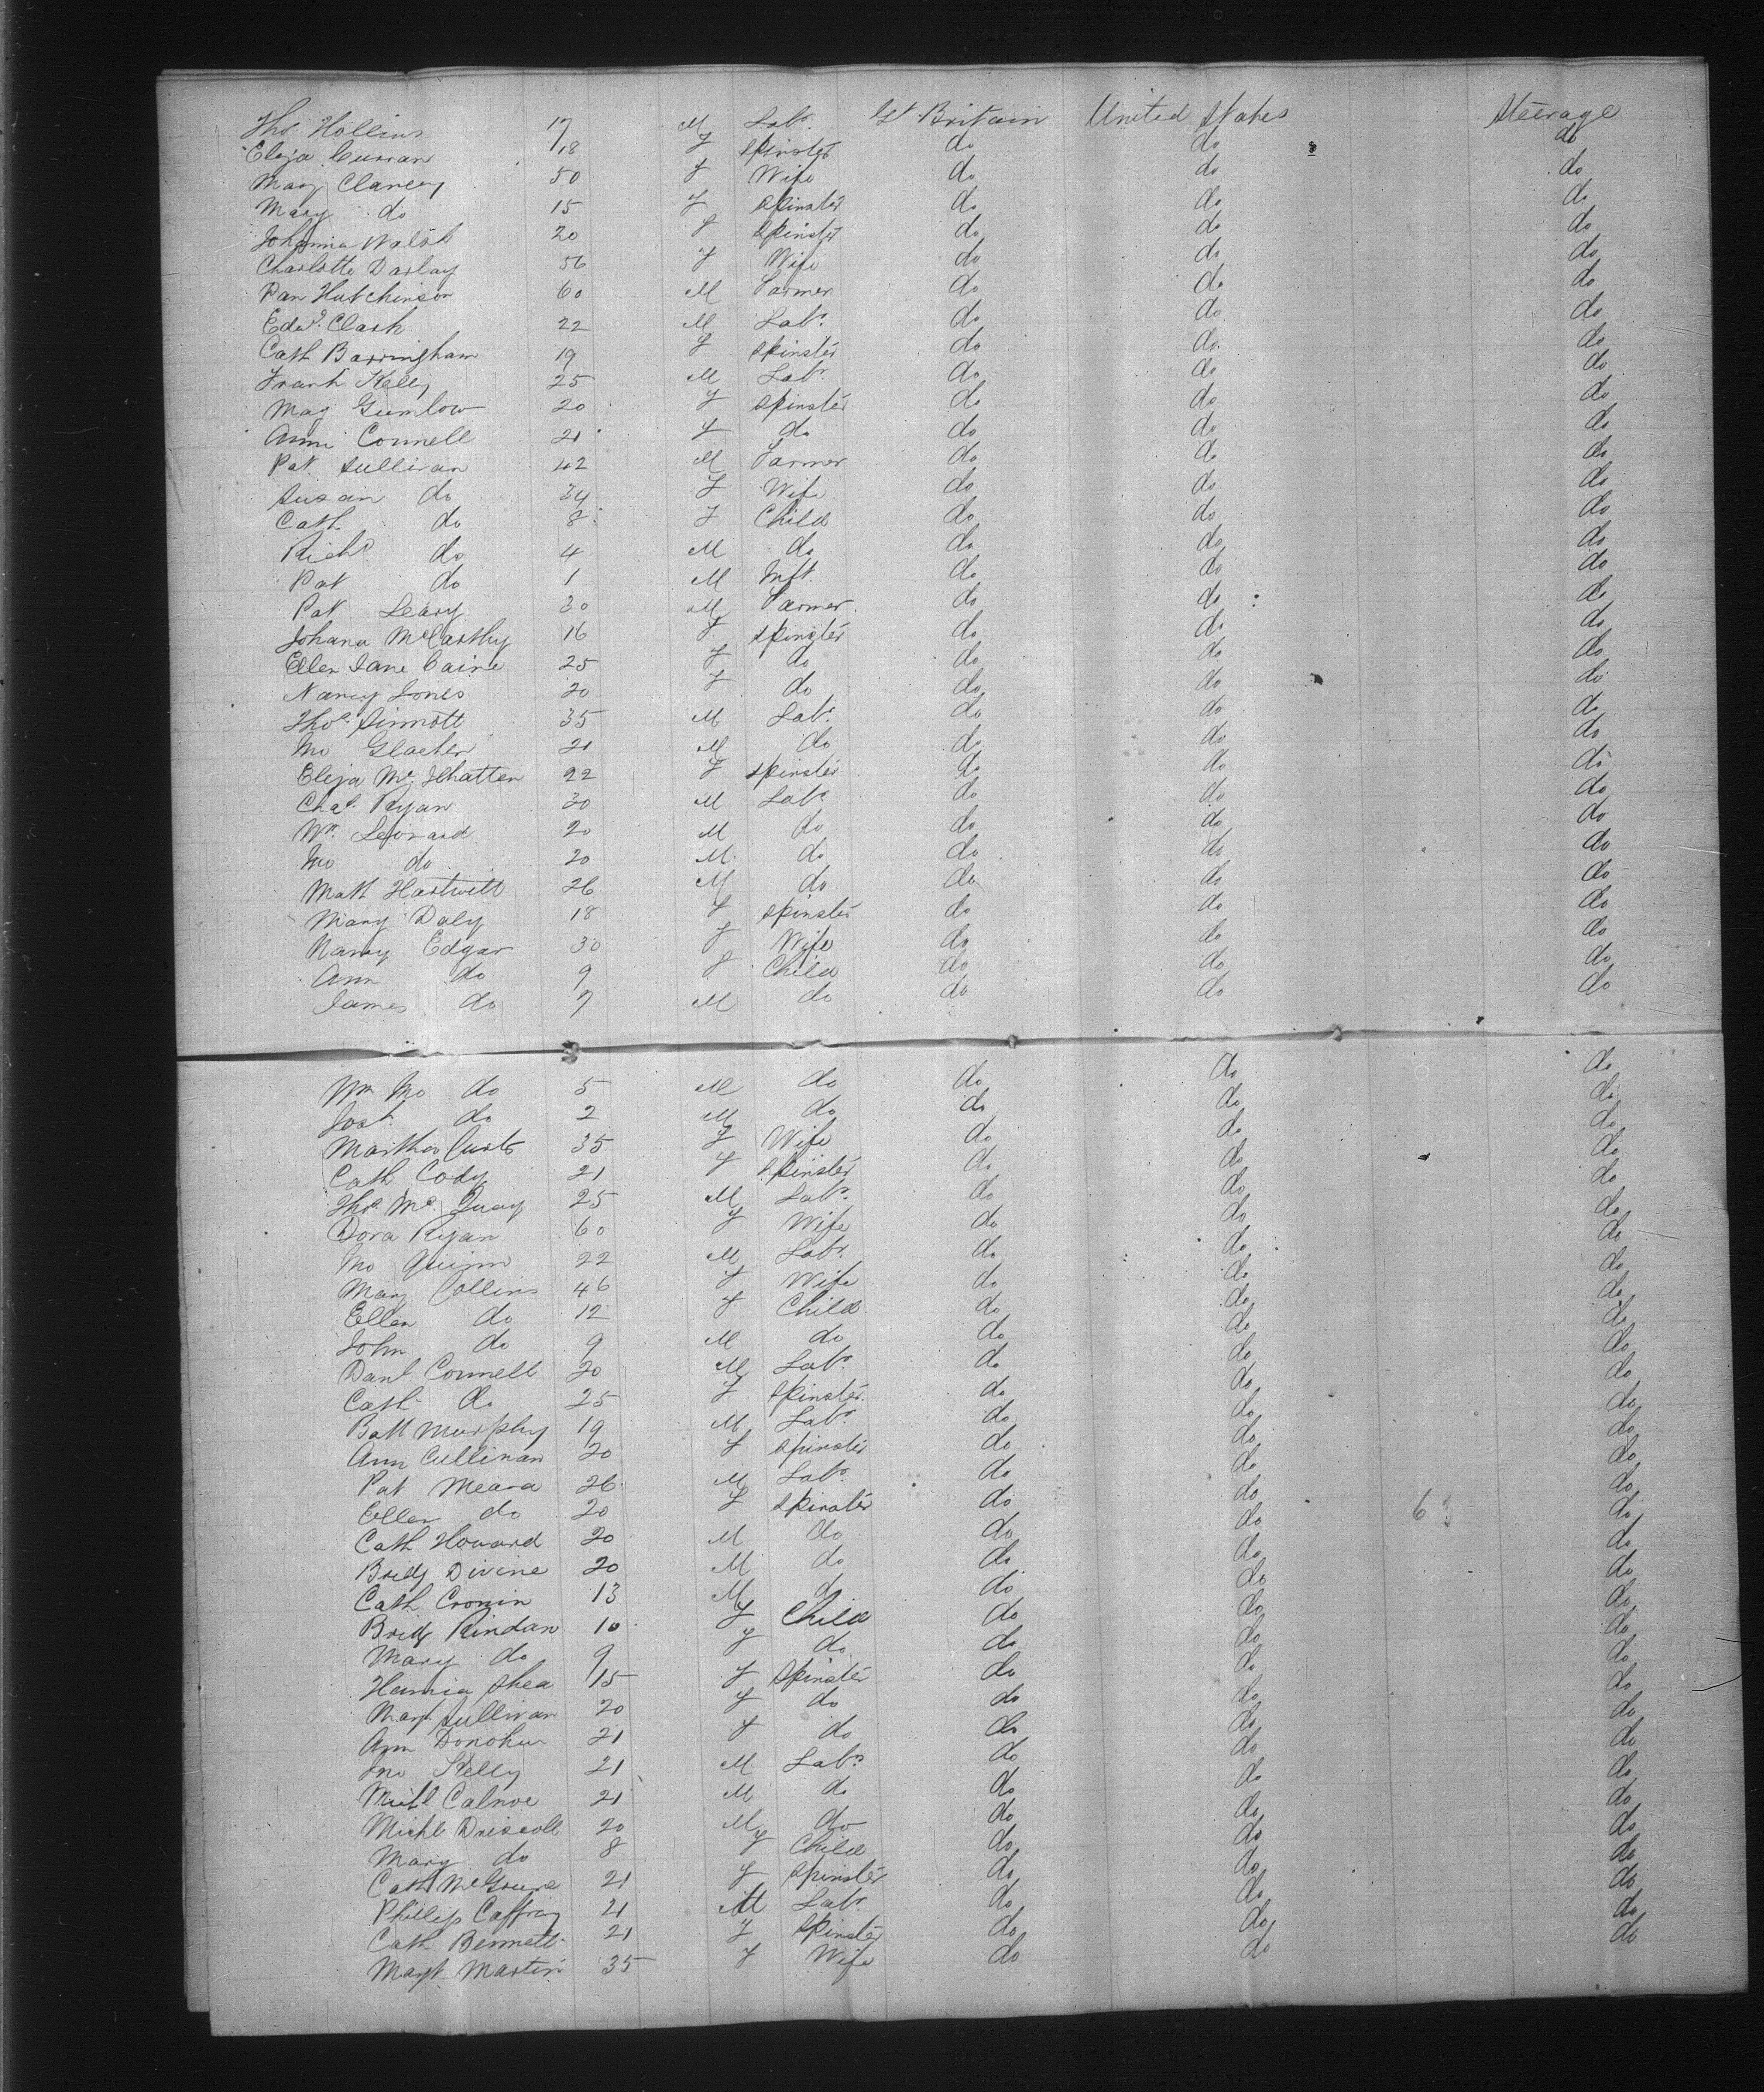 Thos Hollins 17 M Labr. Gt Britain United States Steerage
Eliza Curran 18 F Spinster do do do
Mary Clancey 50 F Wife do do do
Mary do 15 F Spinster do do do
Johanna Walsh 20 F Spinster do do do
Charlotte Darlay 56 F Wife do do do
Dan Hutchinson 60 M Farmer do do do
Edwd. Clark 22 M Labr. do do do
Cath Barringham 19 F Spinster do do do
Frank Kelly 25 M Labr. do do do
Mag Gumlow 20 F Spinster do do do
Ann Connell 21 F do do do do
Pat Sullivan 42 M Farmer do do do
Susan do 34 F Wife do do do
Cath do 8 F Child do do do
Richd do 4 M do do do do
Pat do 1 M Inft. do do do
Pat Leary 30 M Farmer do do do
Johana McCarthy 16 F Spinster do do do
Ellen Jane Caine 25 F do do do do
Nancy Jones 20 F do do do do
Thos. Sinnott 35 M Labr. do do do
Jno 21 M do do do do
Eliza Mc Ilhatten 22 F Spinster do do do
Chas. Ryan 30 M Labr. do do do
Wm. Leonard 20 M do do do do
Jno do 20 M do do do do
Matt Hartwell 26 M do do do do
Mary Daly 18 F Spinster do do do
Nancy Edgar 30 F Wife do do do
Ann do 9 F Child do do do
James do 7 M do do do do
Wm Jno do 5 M do do do do
Josh. do 2 M do do do do
Martha 35 F Wife do do do
Cath Cody 21 F Spinster do do do
Thos. Mc Quay 25 M Labr. do do do
Dora Ryan 60 F Wife do do do
Jno Quinn 22 M Labr. do do do
Mary Collins 46 F Wife do do do
Ellen do 12 F Child do do do
John do 9 M do do do do
Danl Connell 20 M Labr. do do do
Cath do 25 F Spinster do do do
Batt Murphy 19 M Labr. do do do
Ann Cullinan 20 F Spinster do do do
Pat Meara 26 M Labr. do do do
Ellen do 20 F Spinster do do 63 do
Cath Howard 20 M do do do do
Bridg Divine 20 M do do do do
Cath Cronin 13 M do do do do
Bridg Rindan 10 F Child do do do
Mary do 9 F do do do do
Hannia Shea 15 F Spinster do do do
Margt. Sullivan 20 F do do do do
Ann Donohue 21 F do do do do
Jno Kelly 21 M Labr. do do do
Michl Calnoe 21 M do do do do
Michl Driscoll 20 M do do do do
Mary do 8 F Child do do do
Cath 21 F Spinster do do do
Phillip Caffray 21 M Labr. do do do
Cath Bennett 21 F Spinster do do do
Margt. Martin 35 F Wife do do do